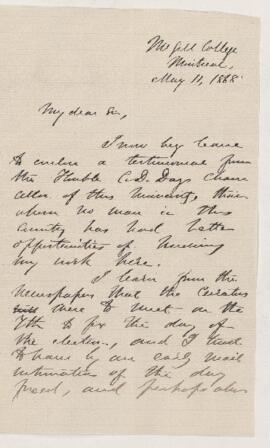 McGill College
Montreal,
May 11, 1868
My dear Sir,
I now beg leave
to enclose a testimonial from
the Honble C. D. Day Chan
cellor of this University, than
whom no man in this
country has had better
opportunities of knowing
my work here.
I learn from the
Newspapers that the Curators
were to meet on the
7th to fix the day of
the election, and I trust
to have by an early mail
intimation of the day
fixed, and perhaps also